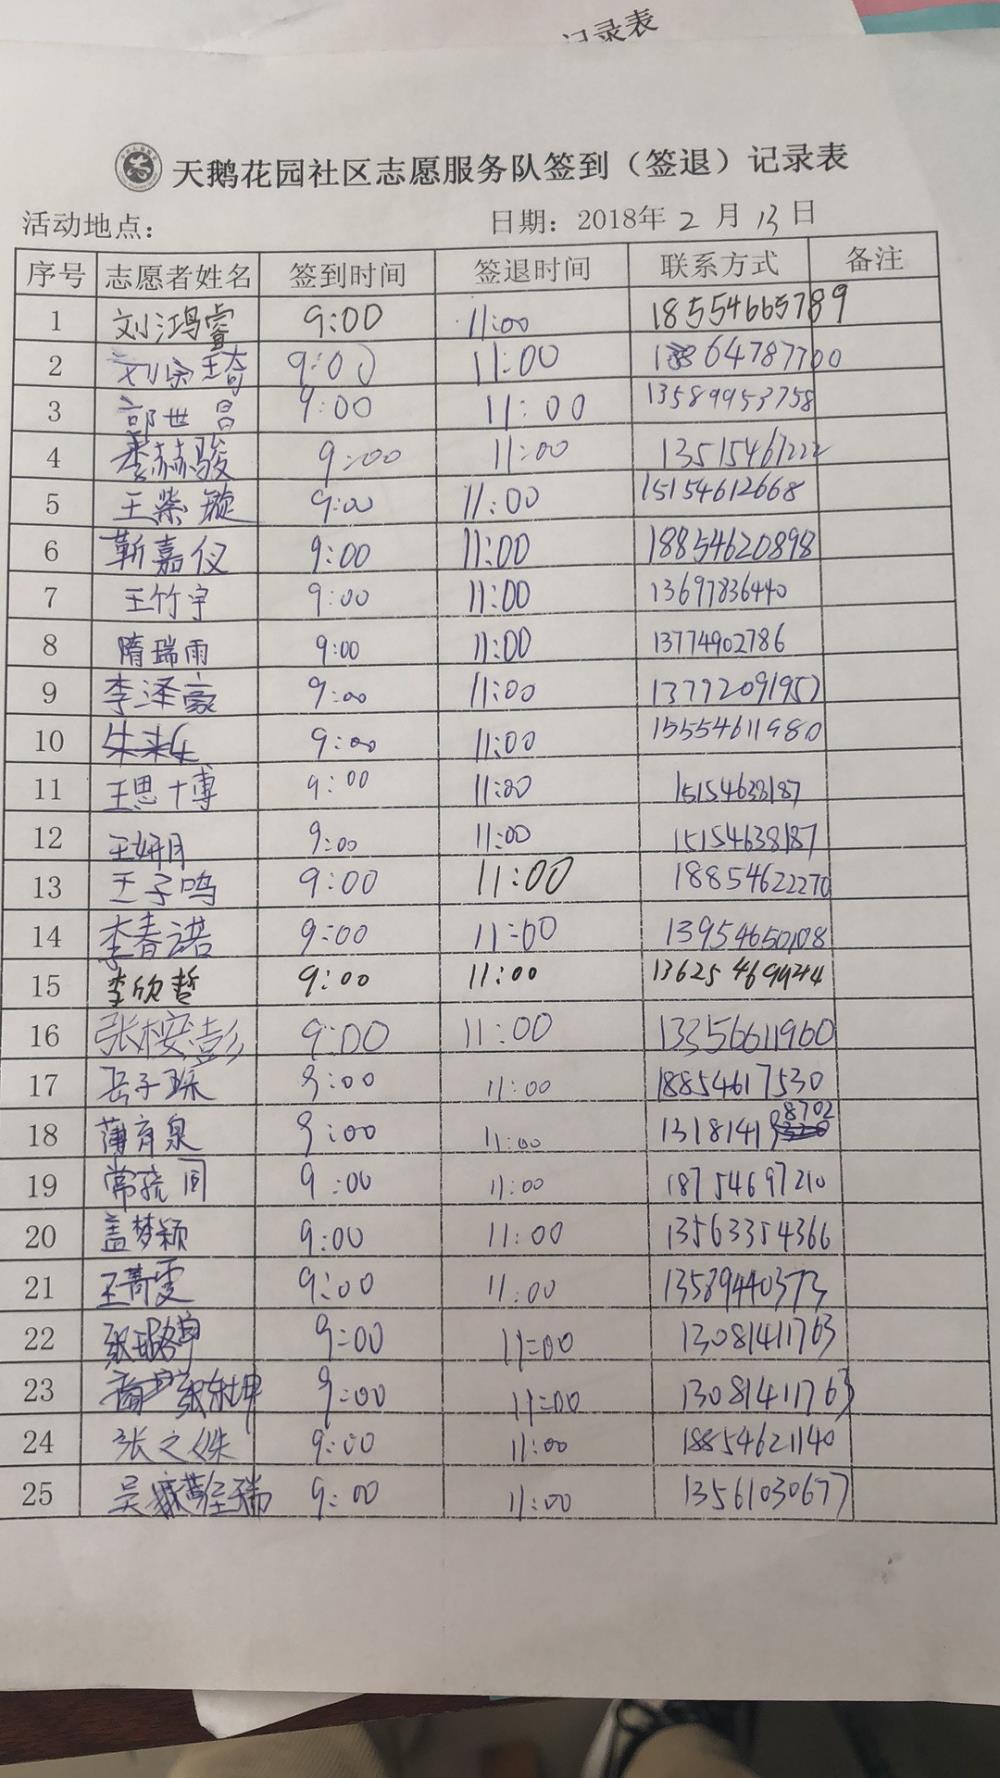 记录表
天鹅花园社区志愿服务队签到（签退）记录表
活动地点： 日期：2018年 2 月 13 日
序号 志愿者姓名 签到时间 签退时间 联系方式 备注
1 刘鸿睿 9:00 11:00 18554665789
2 9:00 11:00 18864787700
3 郭世昌 9:00 11:00 13589953758
4 季赫骏 9:00 11:00 13515461222
5 王紫璇 9:00 11:00 15154612668
6 靳嘉仪 9:00 11:00 18854620898
7 王竹宇 9:00 11:00 13697836440
8 隋瑞雨 9:00 11:00 13774902786
9 李泽豪 9:00 11:00
10 9:00 11:00 15554611980
11 王思博 9:00 11:00 15154638187
12 王妍月 9:00 11:00 15154638187
13 王子鸣 9:00 11:00 18854622270
14 李春诺 9:00 11:00 13954650108
15 李欣哲 9:00 11:00
16 张桉彭 9:00 11:00 13356611960
17 岳子琛 9:00 11:00 18854617530
18 蒲育泉 9:00 11:00
19 9:00 11:00 18754697210
20 盖梦颖 9:00 11:00 13563354366
21 王菁雯 9:00 11:00 13589440373
22 9:00 11:00 13081411763
23 张东坤 9:00 11:00 13081411763
24 张之姝 9:00 11:00 18854621140
25 吴 瑞 9:00 11:00 13561030677